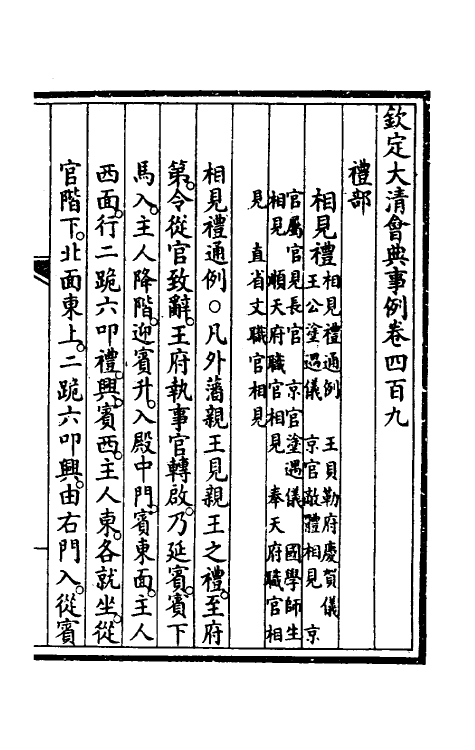 欽定大清會典事例卷四百九
禮部
相見禮 相見禮通例 王貝勒府慶賀儀
王公塗遇儀 京官敵體相見 京
官屬官見長官 京官塗遇儀 國學師生
相見 順天府職官相見 奉天府職官相
見 直省文職官相見
相見禮通例○凡外藩親王見親王之禮。至府
第。令從官致辭。王府執事官轉啟。乃延賓。賓下
馬入。主人降階。迎賓升。入殿中門。賓東面。主人
西面。行二跪六叩禮。興。賓西。主人東。各就坐。從
官階下。北面東上。二跪六叩興。由右門入。從賓